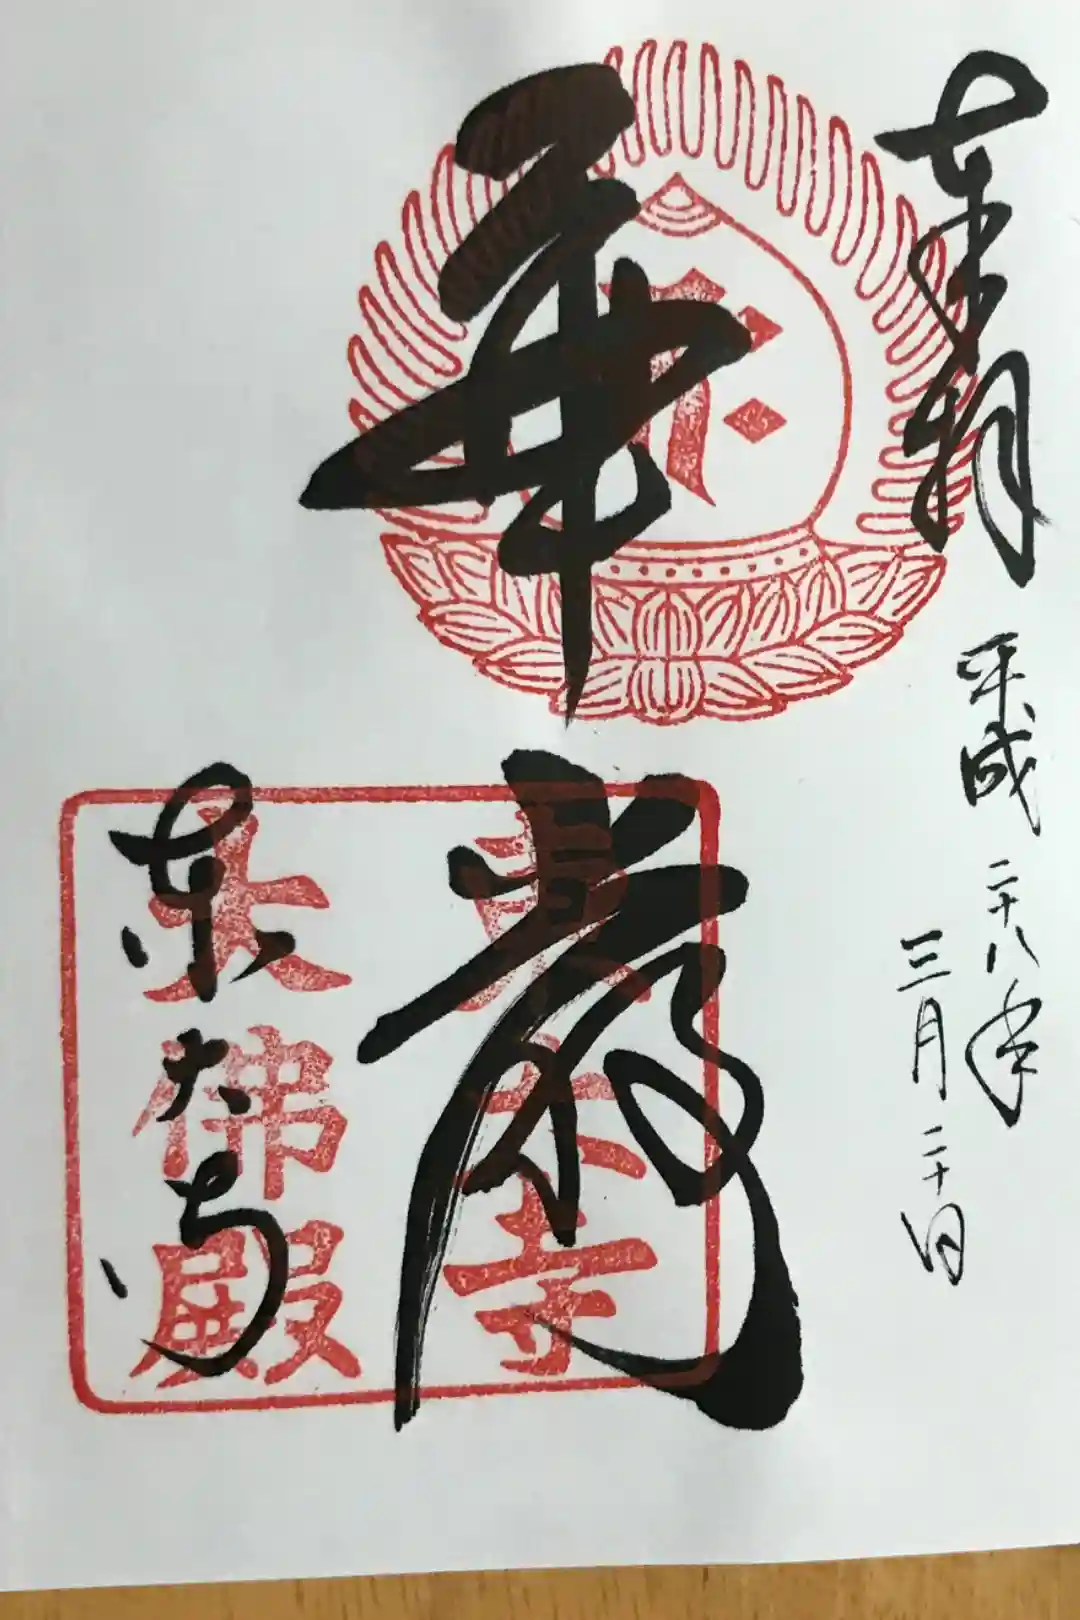 奉拝
平成二十八年
三月二十日
華嚴
東大寺
東大寺
大佛殿